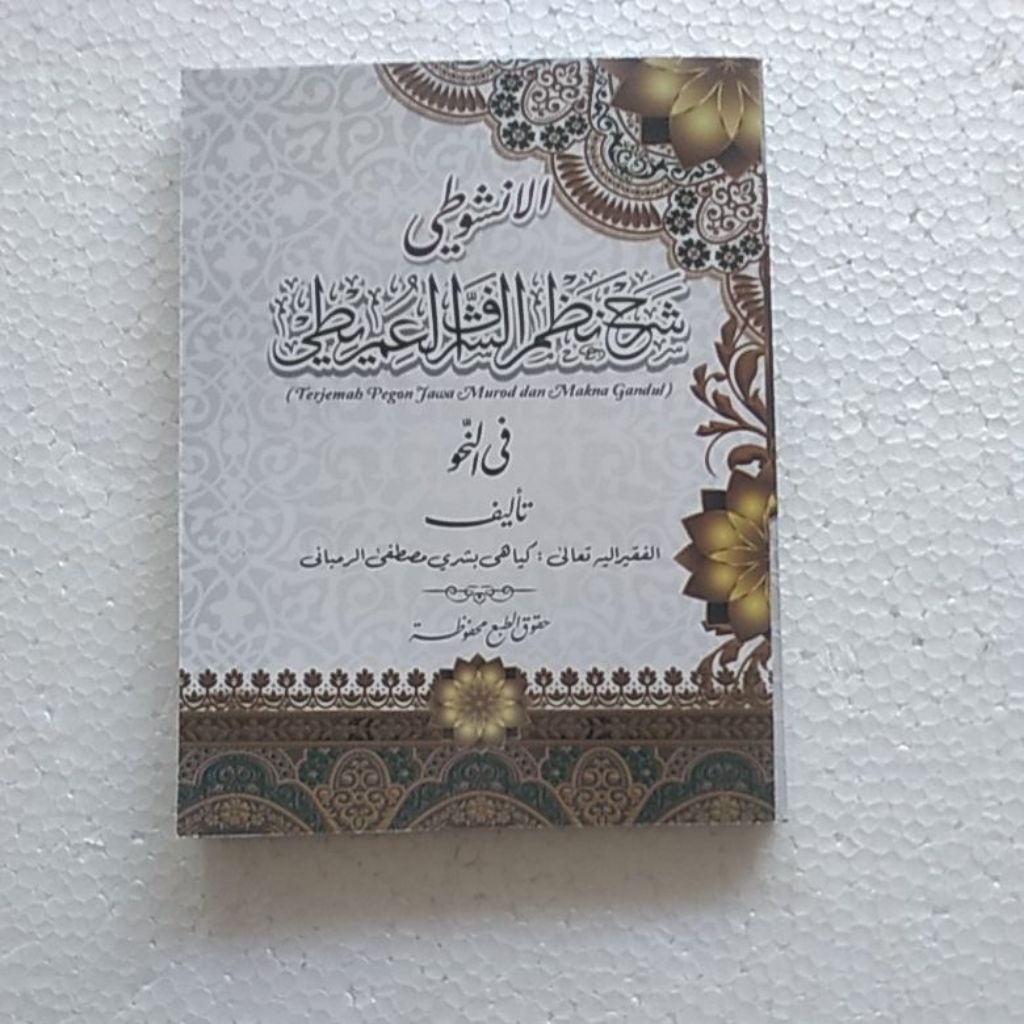 الانشوطي
شرح نظم الشرف العمريطي
(Terjemah Pegon Jawa Murod dan Makna Gandul)
فى النحو
تأليف
الفقير اليه تعالى : كياهى بشري مصطفى الرمبانى
حقوق الطبع محفوظة